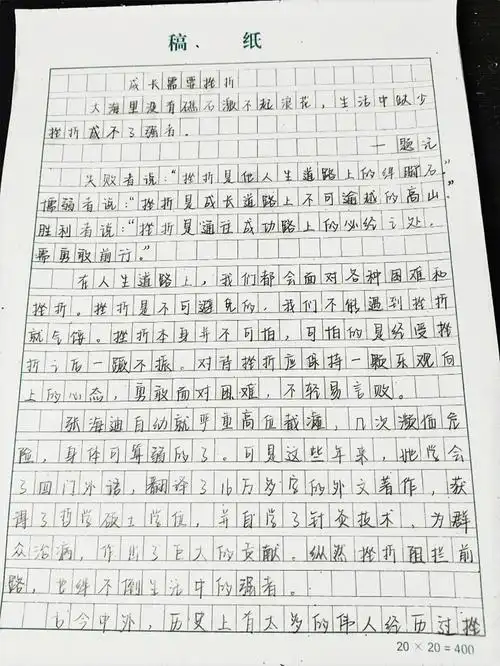 稿 纸
成长需要挫折
大海里没有礁石激不起浪花,生活中缺少
挫折成不了强者。
—题记
失败者说:“挫折是他人生道路上的绊脚石。”
懦弱者说:“挫折是成长道路上不可逾越的高山。”
胜利者说:“挫折是通往成功路上的必经之处,
需勇敢前行。”
在人生道路上,我们都会面对各种困难和
挫折。挫折是不可避免的,我们不能遇到挫折
就气馁。挫折本身并不可怕,可怕的是经受挫
折之后一蹶不振。对待挫折应保持一颗乐观向
上的心态,勇敢面对困难,不轻易言败。
张海迪自幼就严重高位截瘫,几次濒临危
险,身体可算弱的了。可是这些年来,她学会
了四门外语,翻译了16万多字的外文著作,获
得了哲学硕士学位,并自学了针灸技术,为群
众治病,作出了巨大的贡献。纵然挫折阻拦前
路,也绊不倒生活中的强者。
古今中外,历史上有太多的伟人经历过挫
20×20=400